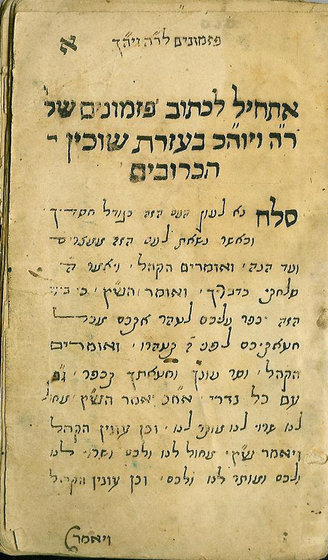 פזמונים לר״ה ויה״ך
א
אתחיל לכתוב פזמונים של
ר״ה ויוה״כ בעזרת שוכין
הכרובים
סלח נא לעון העם הזה כגודל חסדיך
וכאשר נשאת לעם הזה ממצרים
ועד הנה׳ ואומרים הקהל׳ ויאמר ה׳
סלחתי כדבריך׳ ואומר הש״ץ׳ כי ביום
הזה יכפר עליכם לטהר אתכם מכל
חטאתיכם לפני ה׳ תטהרו׳ ואומרים
הקהל׳ וסר עונך וחטאתך תכפר׳
עם כל נדרי׳ אח״כ אמר הש״ץ׳ מחול
לנו שרוי לנו מותר לנו׳ וכן עונין הקהל
ויאמר ש״ץ׳ מחול לנו ולכם ושרוי לנו
ולכם ומותר לנו ולכם׳ וכן עונין הקהל
ויאמר